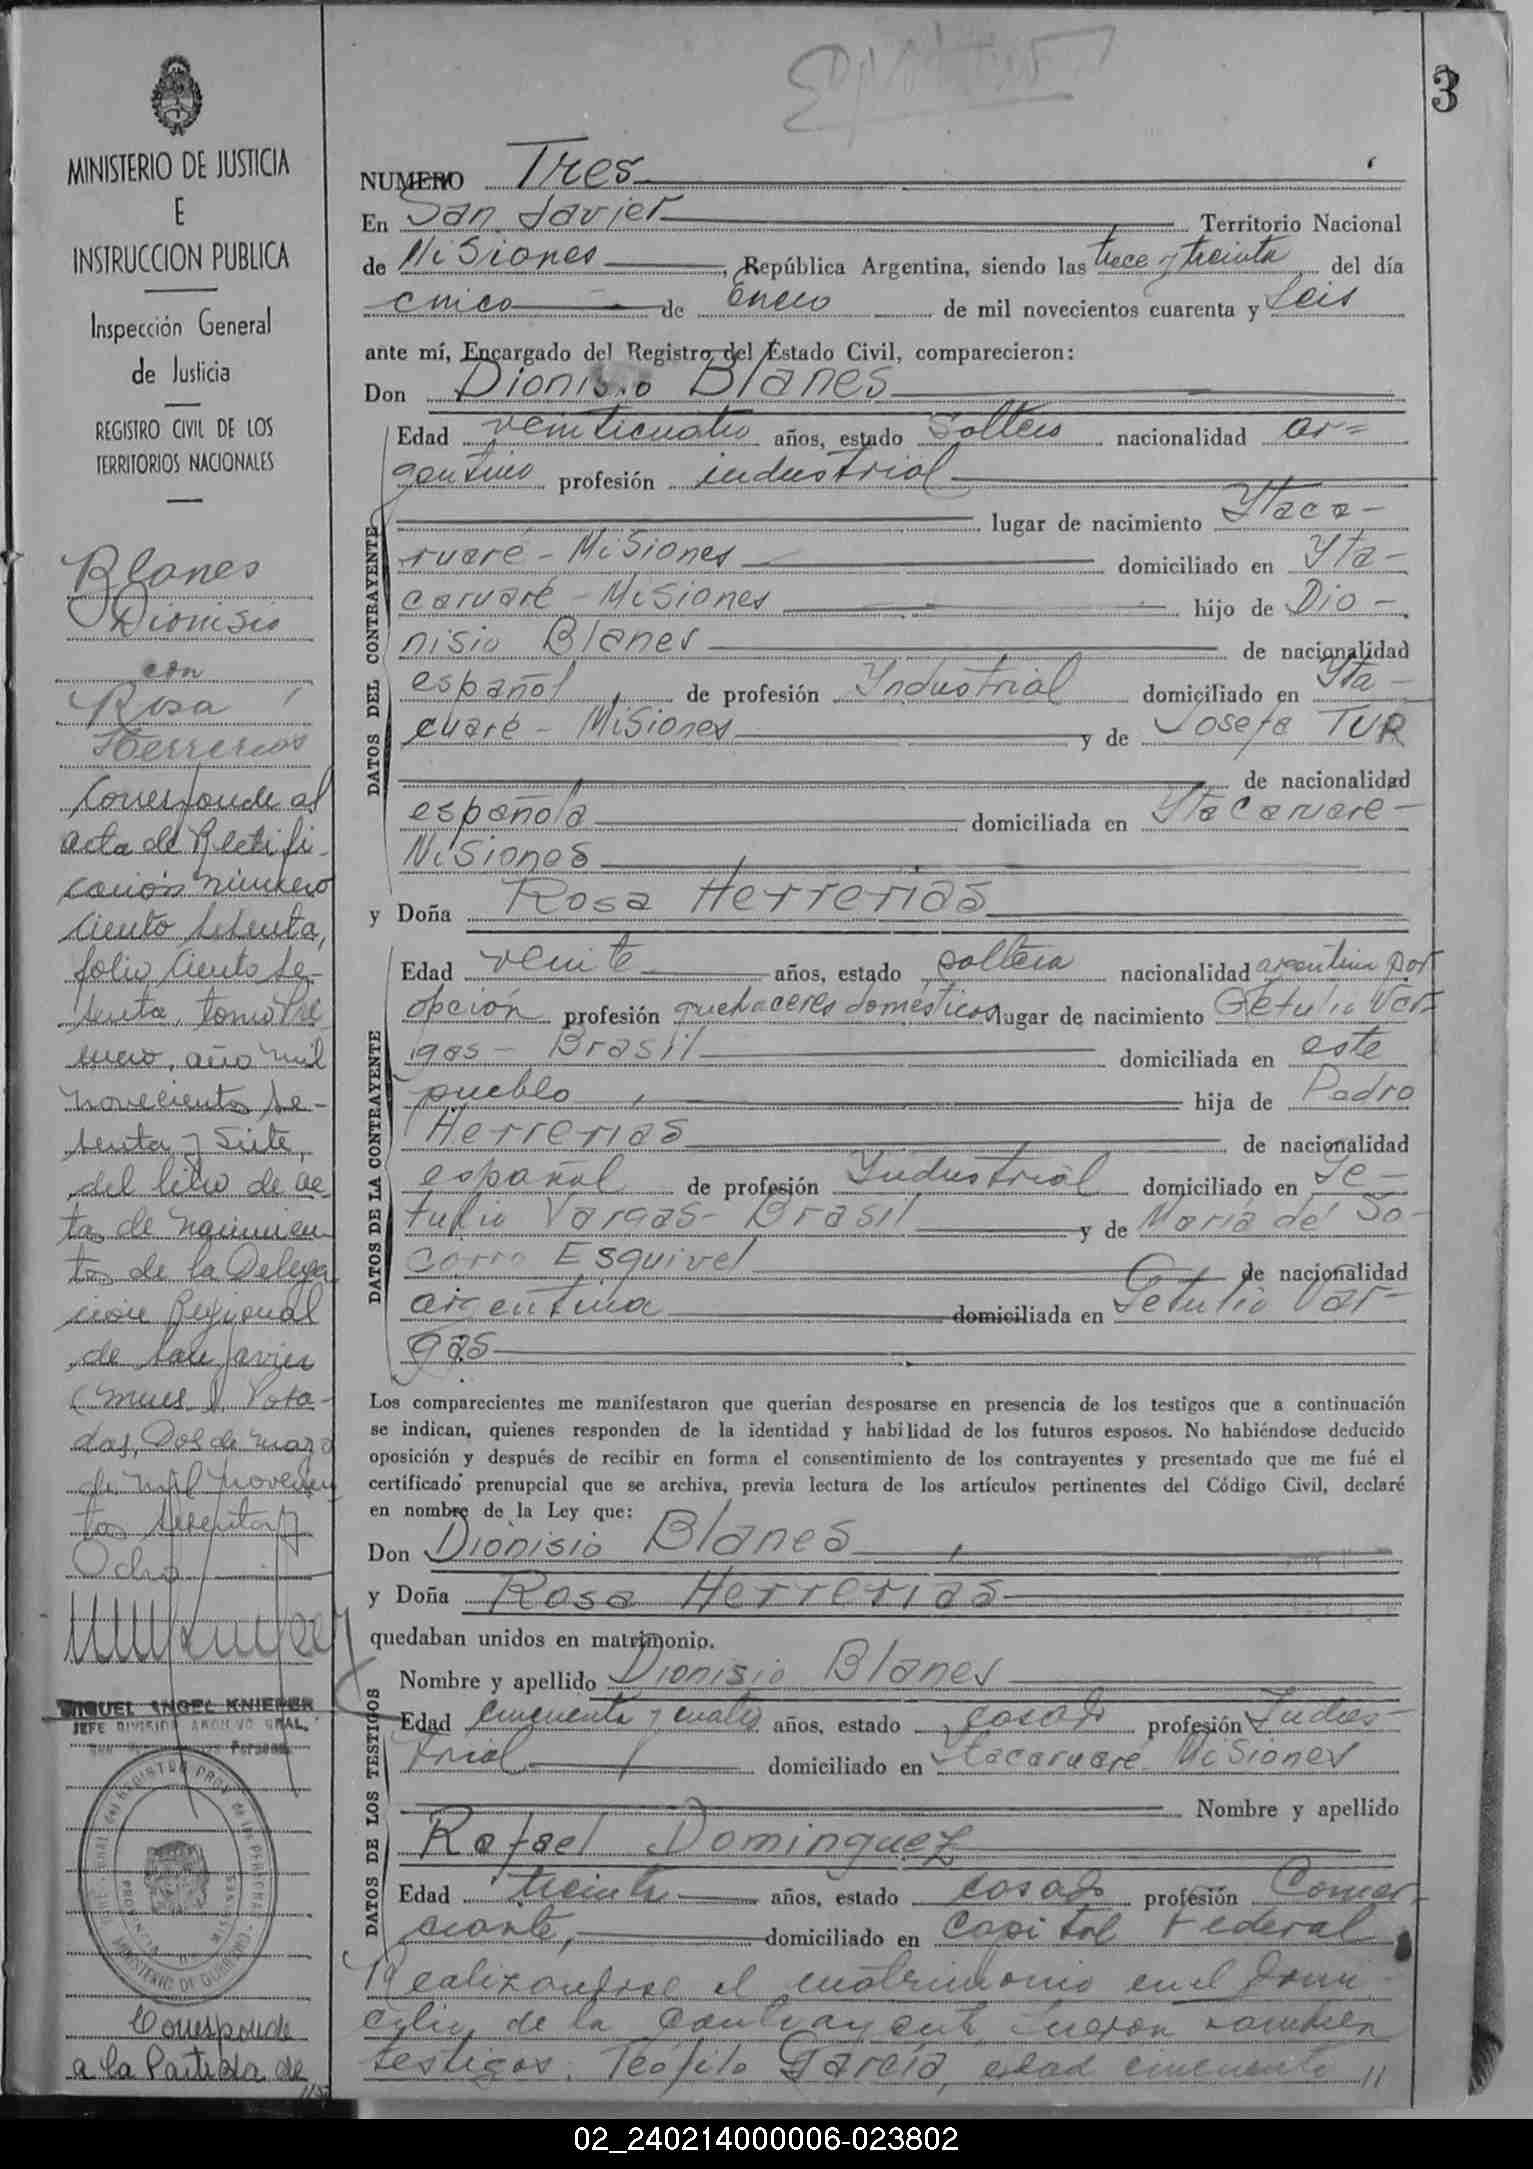 3
MINISTERIO DE JUSTICIA
E
INSTRUCCION PUBLICA
Inspección General
de Justicia
REGISTRO CIVIL DE LOS
TERRITORIOS NACIONALES
Blanes
Dionisio
con
Rosa
Herrerías
Corresponde al
acta de Rectifi-
cación número
ciento setenta,
folio ciento se-
tenta, tomo Pri
mero, año mil
novecientos se-
senta y siete,
del libro de ac
tas de nacimien
tos de la Delega
ción Regional
de San Javier
(Mnes.). Posa-
das, Dos de marzo
de mil novecien
tos sesenta y
Ocho
MIGUEL ANGEL KNIEPER
JEFE DIVISION ARCHIVO GRAL.
Corresponde
a la Partida de
NUMERO Tres
En San Javier Territorio Nacional
de Misiones, República Argentina, siendo las trece y treinta del día
cinco de Enero de mil novecientos cuarenta y seis
ante mí, Encargado del Registro del Estado Civil, comparecieron:
Don Dionisio Blanes
DATOS DEL CONTRAYENTE
Edad veinticuatro años, estado Soltero nacionalidad ar=
gentino profesión industrial
lugar de nacimiento Ytaca-
ruaré - Misiones domiciliado en Yta-
caruaré - Misiones hijo de Dio-
nisio Blanes de nacionalidad
español, de profesión Industrial domiciliado en Yta-
cuaré - Misiones y de Josefa TUR
de nacionalidad
española domiciliada en Ytacaruare-
Misiones
y Doña Rosa Herrerias
DATOS DE LA CONTRAYENTE
Edad veinte años, estado soltera nacionalidad argentina por
opción profesión quehaceres domesticos lugar de nacimiento Getulio Var-
gas - Brasil domiciliada en este
pueblo, hija de Pedro
Herrerias de nacionalidad
español de profesión Industrial domiciliado en Ge-
tulio Vargas - Brasil y de María del So-
corro Esquivel de nacionalidad
argentina domiciliada en Getulio Var-
gas
Los comparecientes me manifestaron que querian desposarse en presencia de los testigos que a continuación
se indican, quienes responden de la identidad y habilidad de los futuros esposos. No habiéndose deducido
oposición y después de recibir en forma el consentimiento de los contrayentes y presentado que me fué el
certificado prenupcial que se archiva, previa lectura de los artículos pertinentes del Código Civil, declaré
en nombre de la Ley que:
Don Dionisio Blanes
y Doña Rosa Herrerias
quedaban unidos en matrimonio.
DATOS DE LOS TESTIGOS
Nombre y apellido Dionisio Blanes
Edad cincuenta y cuatro años, estado casado profesión Indus-
trial domiciliado en Ytacaruaré Misiones
Nombre y apellido
Rafael Dominguez
Edad treinta años, estado casado profesión Comer-
ciante, domiciliado en Capital Federal
Realizandose el matrimonio en el domi-
cilio de la contrayente fueron tambien
testigos: Teófilo García, edad cincuenta //
02_240214000006-023802